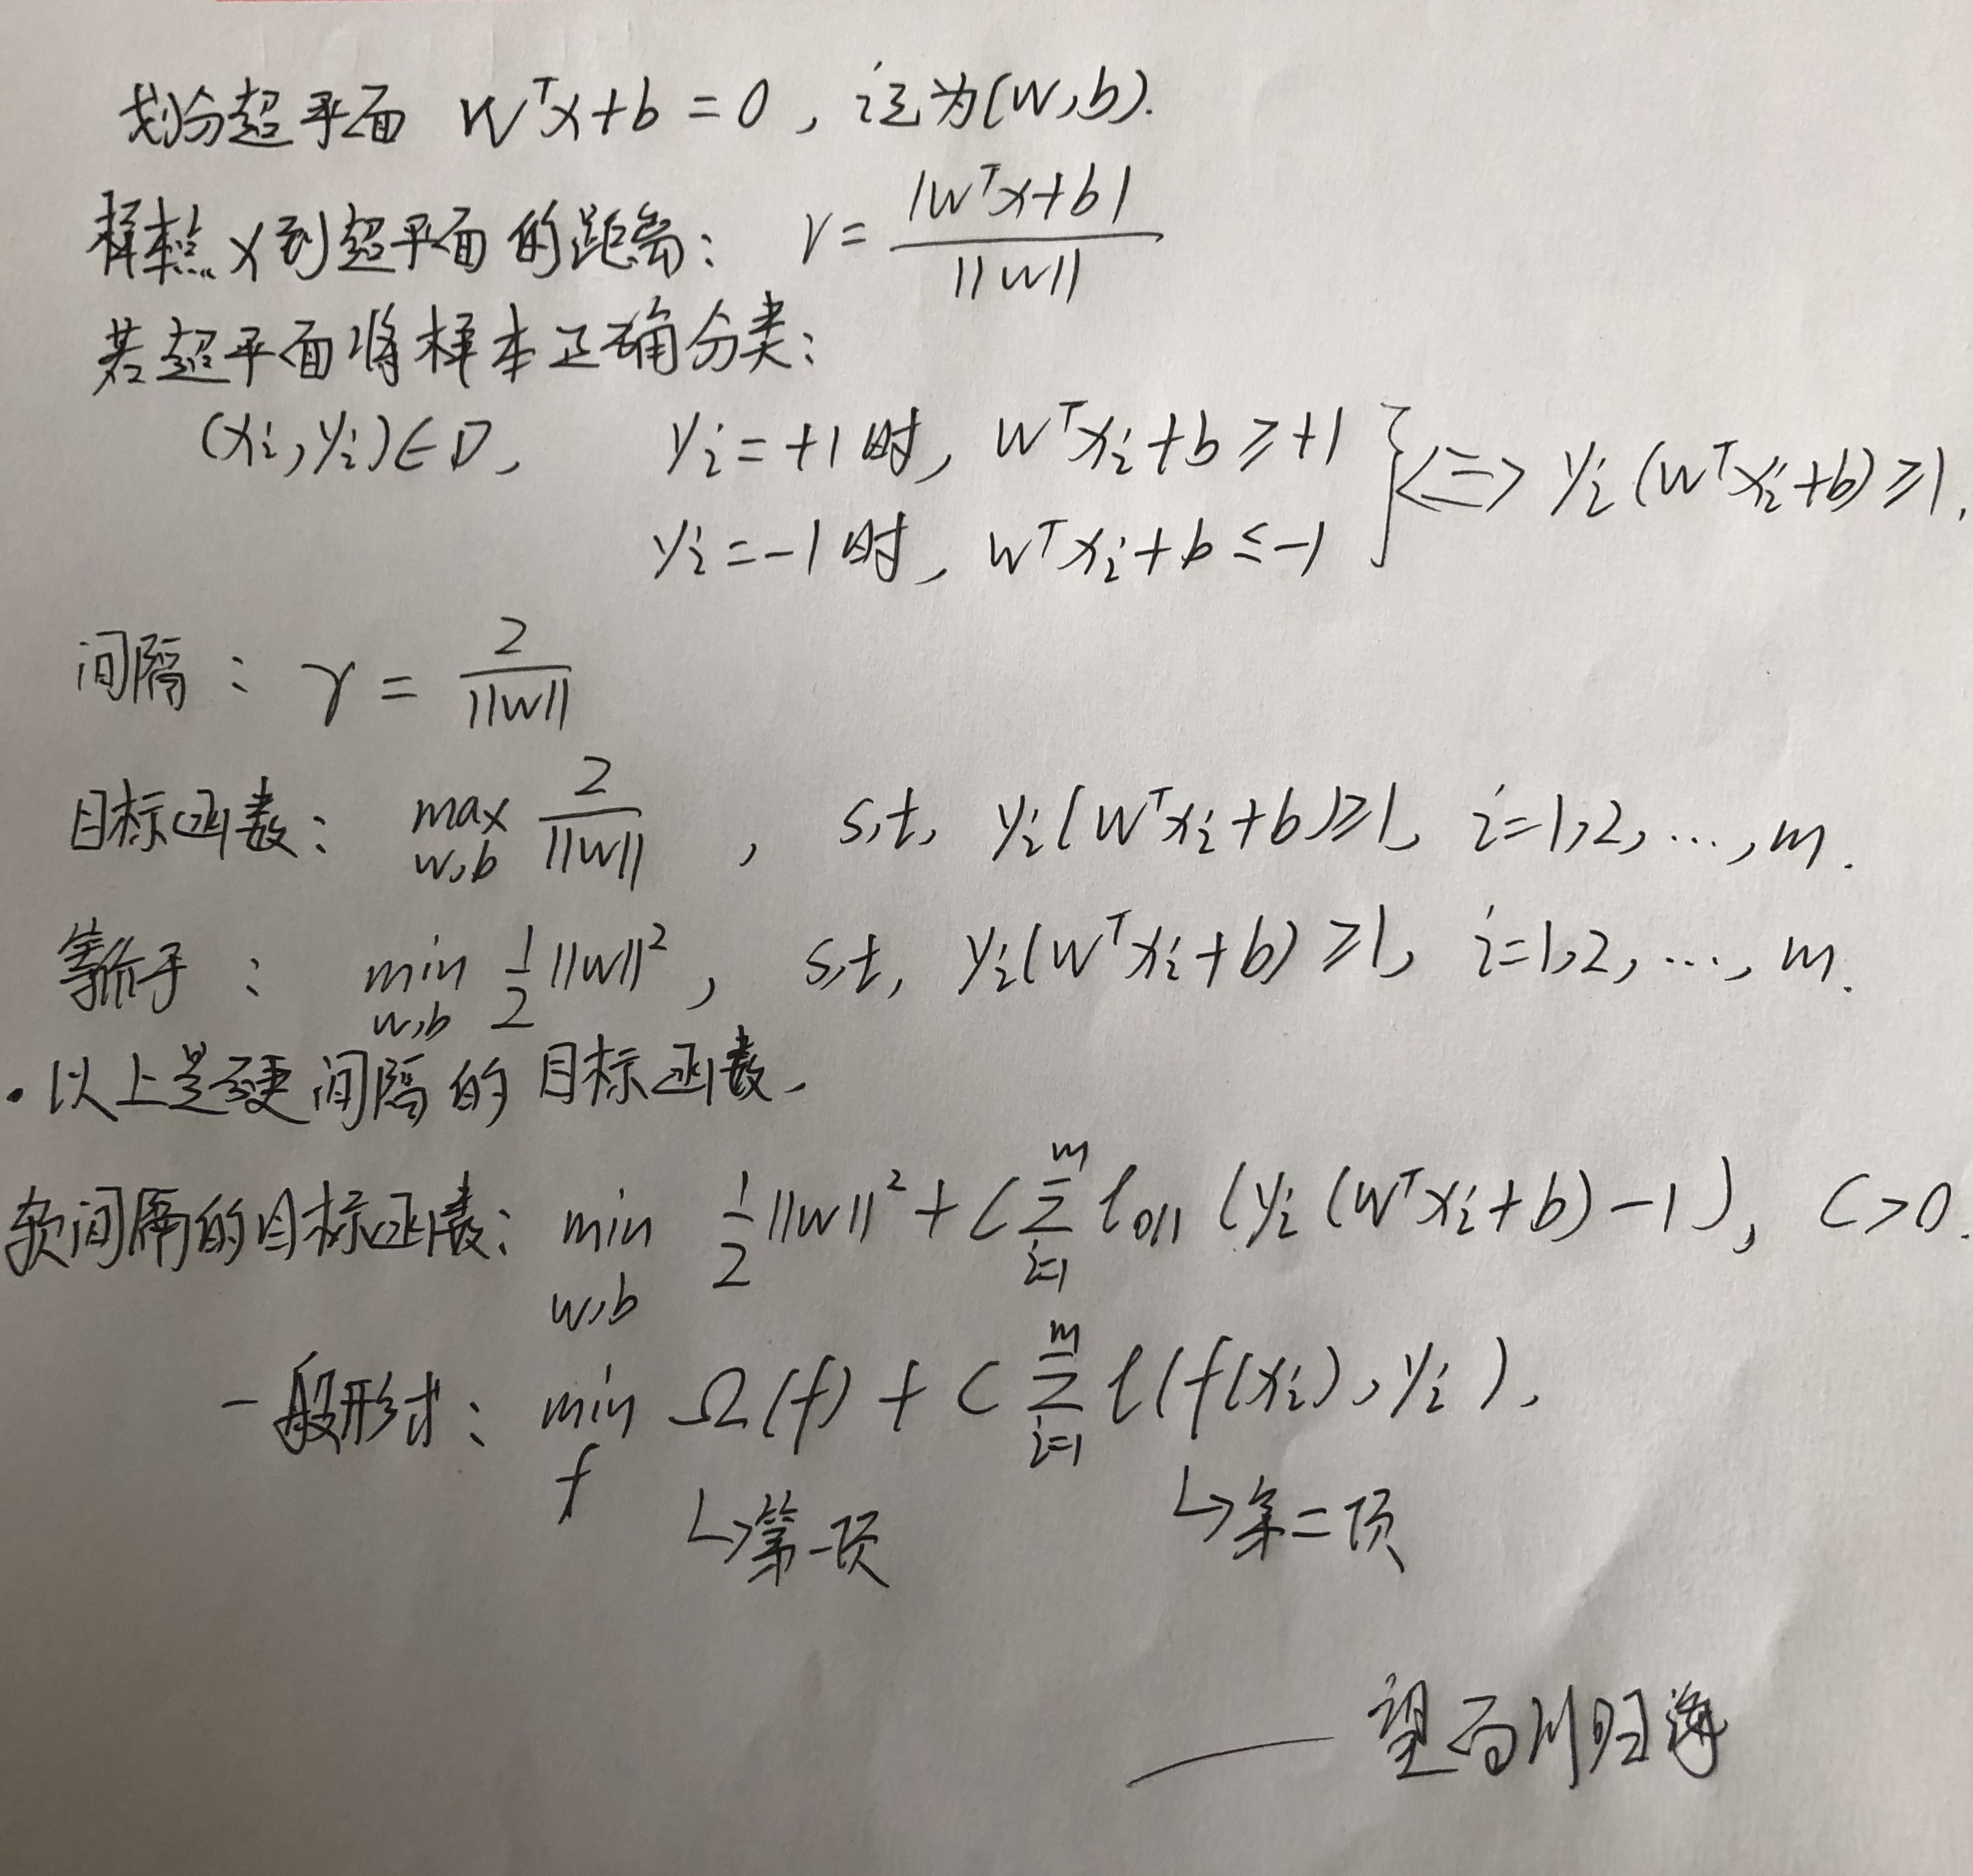 划分超平面 wᵀx+b=0, 记为(w,b).
样本点x到超平面的距离: r = |wᵀx+b| / ||w||
若超平面将样本正确分类:
(xᵢ,yᵢ)∈D, yᵢ=+1时, wᵀxᵢ+b≥+1 } <=> yᵢ(wᵀxᵢ+b)≥1.
yᵢ=-1时, wᵀxᵢ+b≤-1
间隔: γ = 2 / ||w||
目标函数: max w,b 2 / ||w||, s,t, yᵢ(wᵀxᵢ+b)≥1, i=1,2,…,m.
等价于: min w,b 1/2 ||w||², s,t, yᵢ(wᵀxᵢ+b)≥1, i=1,2,…,m.
·以上是硬间隔的目标函数.
软间隔的目标函数: min w,b 1/2 ||w||² + C ∑ᵢ₌₁ᵐ ℓ₀/₁ (yᵢ(wᵀxᵢ+b)-1), C>0.
一般形式: min f Ω(f) + C ∑ᵢ₌₁ᵐ ℓ(f(xᵢ),yᵢ).
↳第一项 ↳第二项
—— 望百川归海